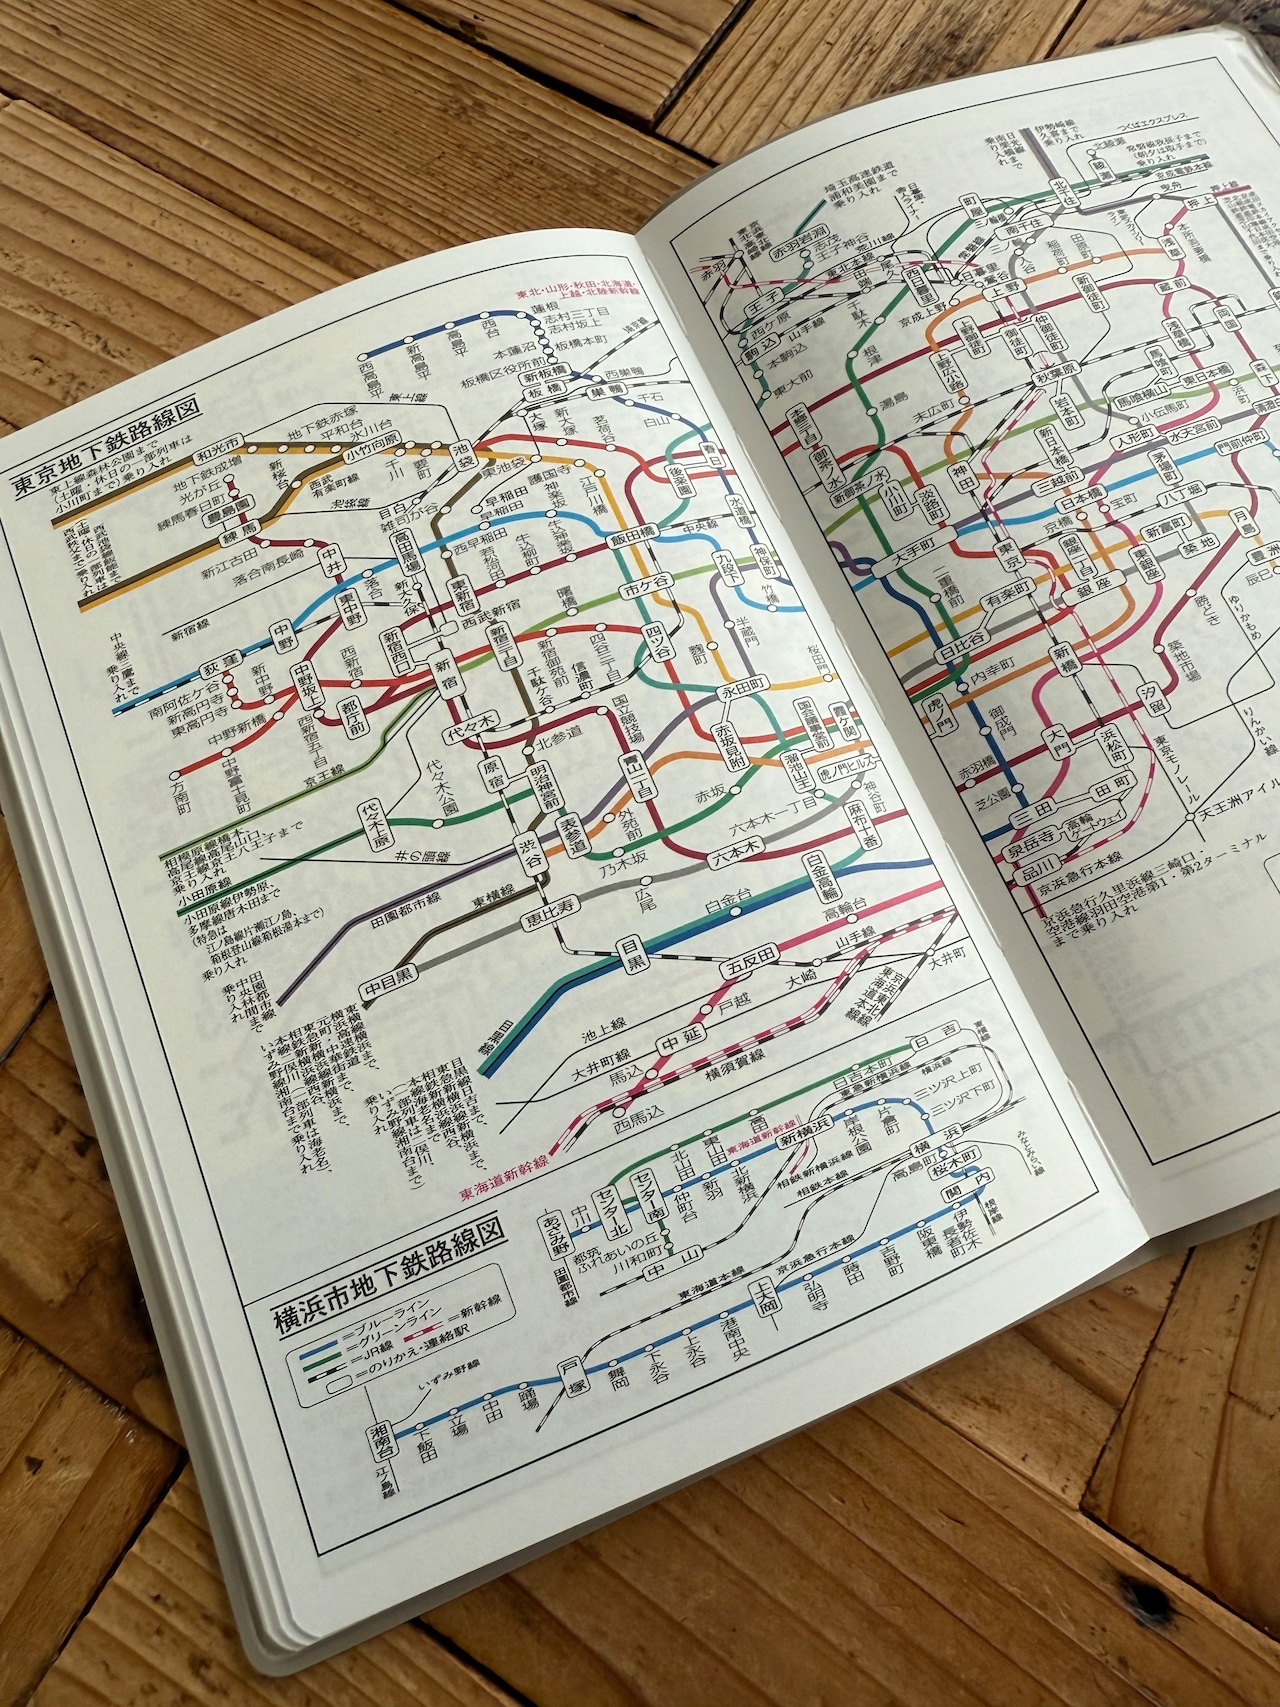 東京地下鉄路線図
東北・山形・秋田・北海道・
上越・北陸新幹線
蓮根
志村三丁目
志村坂上
板橋本町
本蓮沼
板橋区役所前
新板橋
板橋
西台
高島平
新高島平
西高島平
西巣鴨
巣鴨
千石
白山
東上線
東上線森林公園まで
(土曜・休日の一部列車は
小川町まで)乗り入れ
和光市
地下鉄成増
地下鉄赤塚
平和台
氷川台
小竹向原
千川
要町
池袋
大塚
新大塚
茗荷谷
後楽園
春日
水道橋
光が丘
練馬春日町
豊島園
練馬
新桜台
西武
有楽町線
池袋線
新江古田
落合南長崎
中井
目白
雑司が谷
東池袋
護国寺
江戸川橋
早稲田
早稲田
神楽坂
牛込神楽坂
牛込柳町
若松河田
西早稲田
高田馬場
飯田橋
中央線
九段下
神保町
竹橋
新宿線
落合
東中野
新大久保
東新宿
曙橋
市ケ谷
半蔵門
麹町
中央線三鷹まで
乗り入れ
中野
荻窪
南阿佐ケ谷
新高円寺
東高円寺
新中野
中野坂上
西新宿
新宿西口
西武新宿
新宿三丁目
新宿御苑前
四谷三丁目
四ツ谷
永田町
桜田門
新宿
千駄ケ谷
信濃町
国立競技場
赤坂見附
国会議事堂前
霞ケ関
溜池山王
虎ノ門ヒルズ
中野新橋
中野富士見町
方南町
西新宿五丁目
都庁前
京王線
代々木
北参道
代々木公園
代々木上原
原宿
明治神宮前
表参道
青山一丁目
外苑前
赤坂
乃木坂
六本木一丁目
六本木
神谷町
麻布十番
相模原線橋本まで
高尾線高尾山口、
京王線京王八王子まで
乗り入れ
小田原線
小田原線伊勢原、
多摩線唐木田まで
(特急は
江ノ島線片瀬江ノ島、
箱根登山線箱根湯本まで)
乗り入れ
井の頭線
渋谷
田園都市線
東横線
恵比寿
広尾
中目黒
目黒
白金台
白金高輪
高輪台
五反田
山手線
大崎
大井町
戸越
中延
馬込
西馬込
池上線
大井町線
横須賀線
京浜東北線
東海道本線
目黒線
田園都市線
中央林間まで
乗り入れ
東海道新幹線
横浜市地下鉄路線図
=ブルーライン
=グリーンライン
=新幹線
=JR線
=のりかえ・連絡駅
いずみ野線
湘南台
江ノ島線
下飯田
立場
中田
踊場
戸塚
舞岡
下永谷
上永谷
港南中央
上大岡
弘明寺
蒔田
吉野町
阪東橋
伊勢佐木
長者町
関内
根岸線
桜木町
高島町
横浜
みなとみらい線
三ツ沢下町
三ツ沢上町
片倉町
岸根公園
新横浜
北新横浜
新羽
仲町台
センター南
センター北
中川
あざみ野
田園都市線
都筑
ふれあいの丘
川和町
中山
北山田
東山田
高田
日吉本町
日吉
東急新横浜線
横浜線
相鉄新横浜線
相鉄本線
東海道新幹線
東海道本線
京浜急行本線
埼玉高速鉄道
浦和美園まで
乗り入れ
赤羽岩淵
志茂
王子神谷
荒川線
東北本線
赤羽
王子
西ケ原
駒込
本駒込
東大前
本郷三丁目
山手線
田端
尾久
西日暮里
千駄木
根津
湯島
町屋
三ノ輪橋
南千住
三ノ輪
北千住
北綾瀬
綾瀬
つくばエクスプレス
常磐線我孫子まで
(朝夕は取手まで)
乗り入れ
京成電鉄本線
押上線
押上
曳舟
日暮里
鶯谷
入谷
稲荷町
田原町
浅草
本所吾妻橋
京成上野
上野御徒町
上野広小路
御徒町
仲御徒町
新御徒町
蔵前
両国
浅草橋
末広町
秋葉原
岩本町
馬喰町
馬喰横山
東日本橋
小伝馬町
人形町
水天宮前
門前仲町
茅場町
八丁堀
森下
御茶ノ水
新御茶ノ水
小川町
淡路町
神田
新日本橋
三越前
日本橋
宝町
京橋
大手町
東京
二重橋前
銀座一丁目
有楽町
銀座
東銀座
新富町
築地
月島
豊洲
辰巳
日比谷
内幸町
虎ノ門
新橋
汐留
築地市場
勝どき
ゆりかもめ
りんかい線
御成門
芝公園
赤羽橋
大門
浜松町
三田
田町
泉岳寺
高輪
ゲートウェイ
品川
東京モノレール
天王洲アイル
京浜急行本線
京浜急行久里浜線三崎口・
空港線羽田空港第1・第2ターミナル
まで乗り入れ